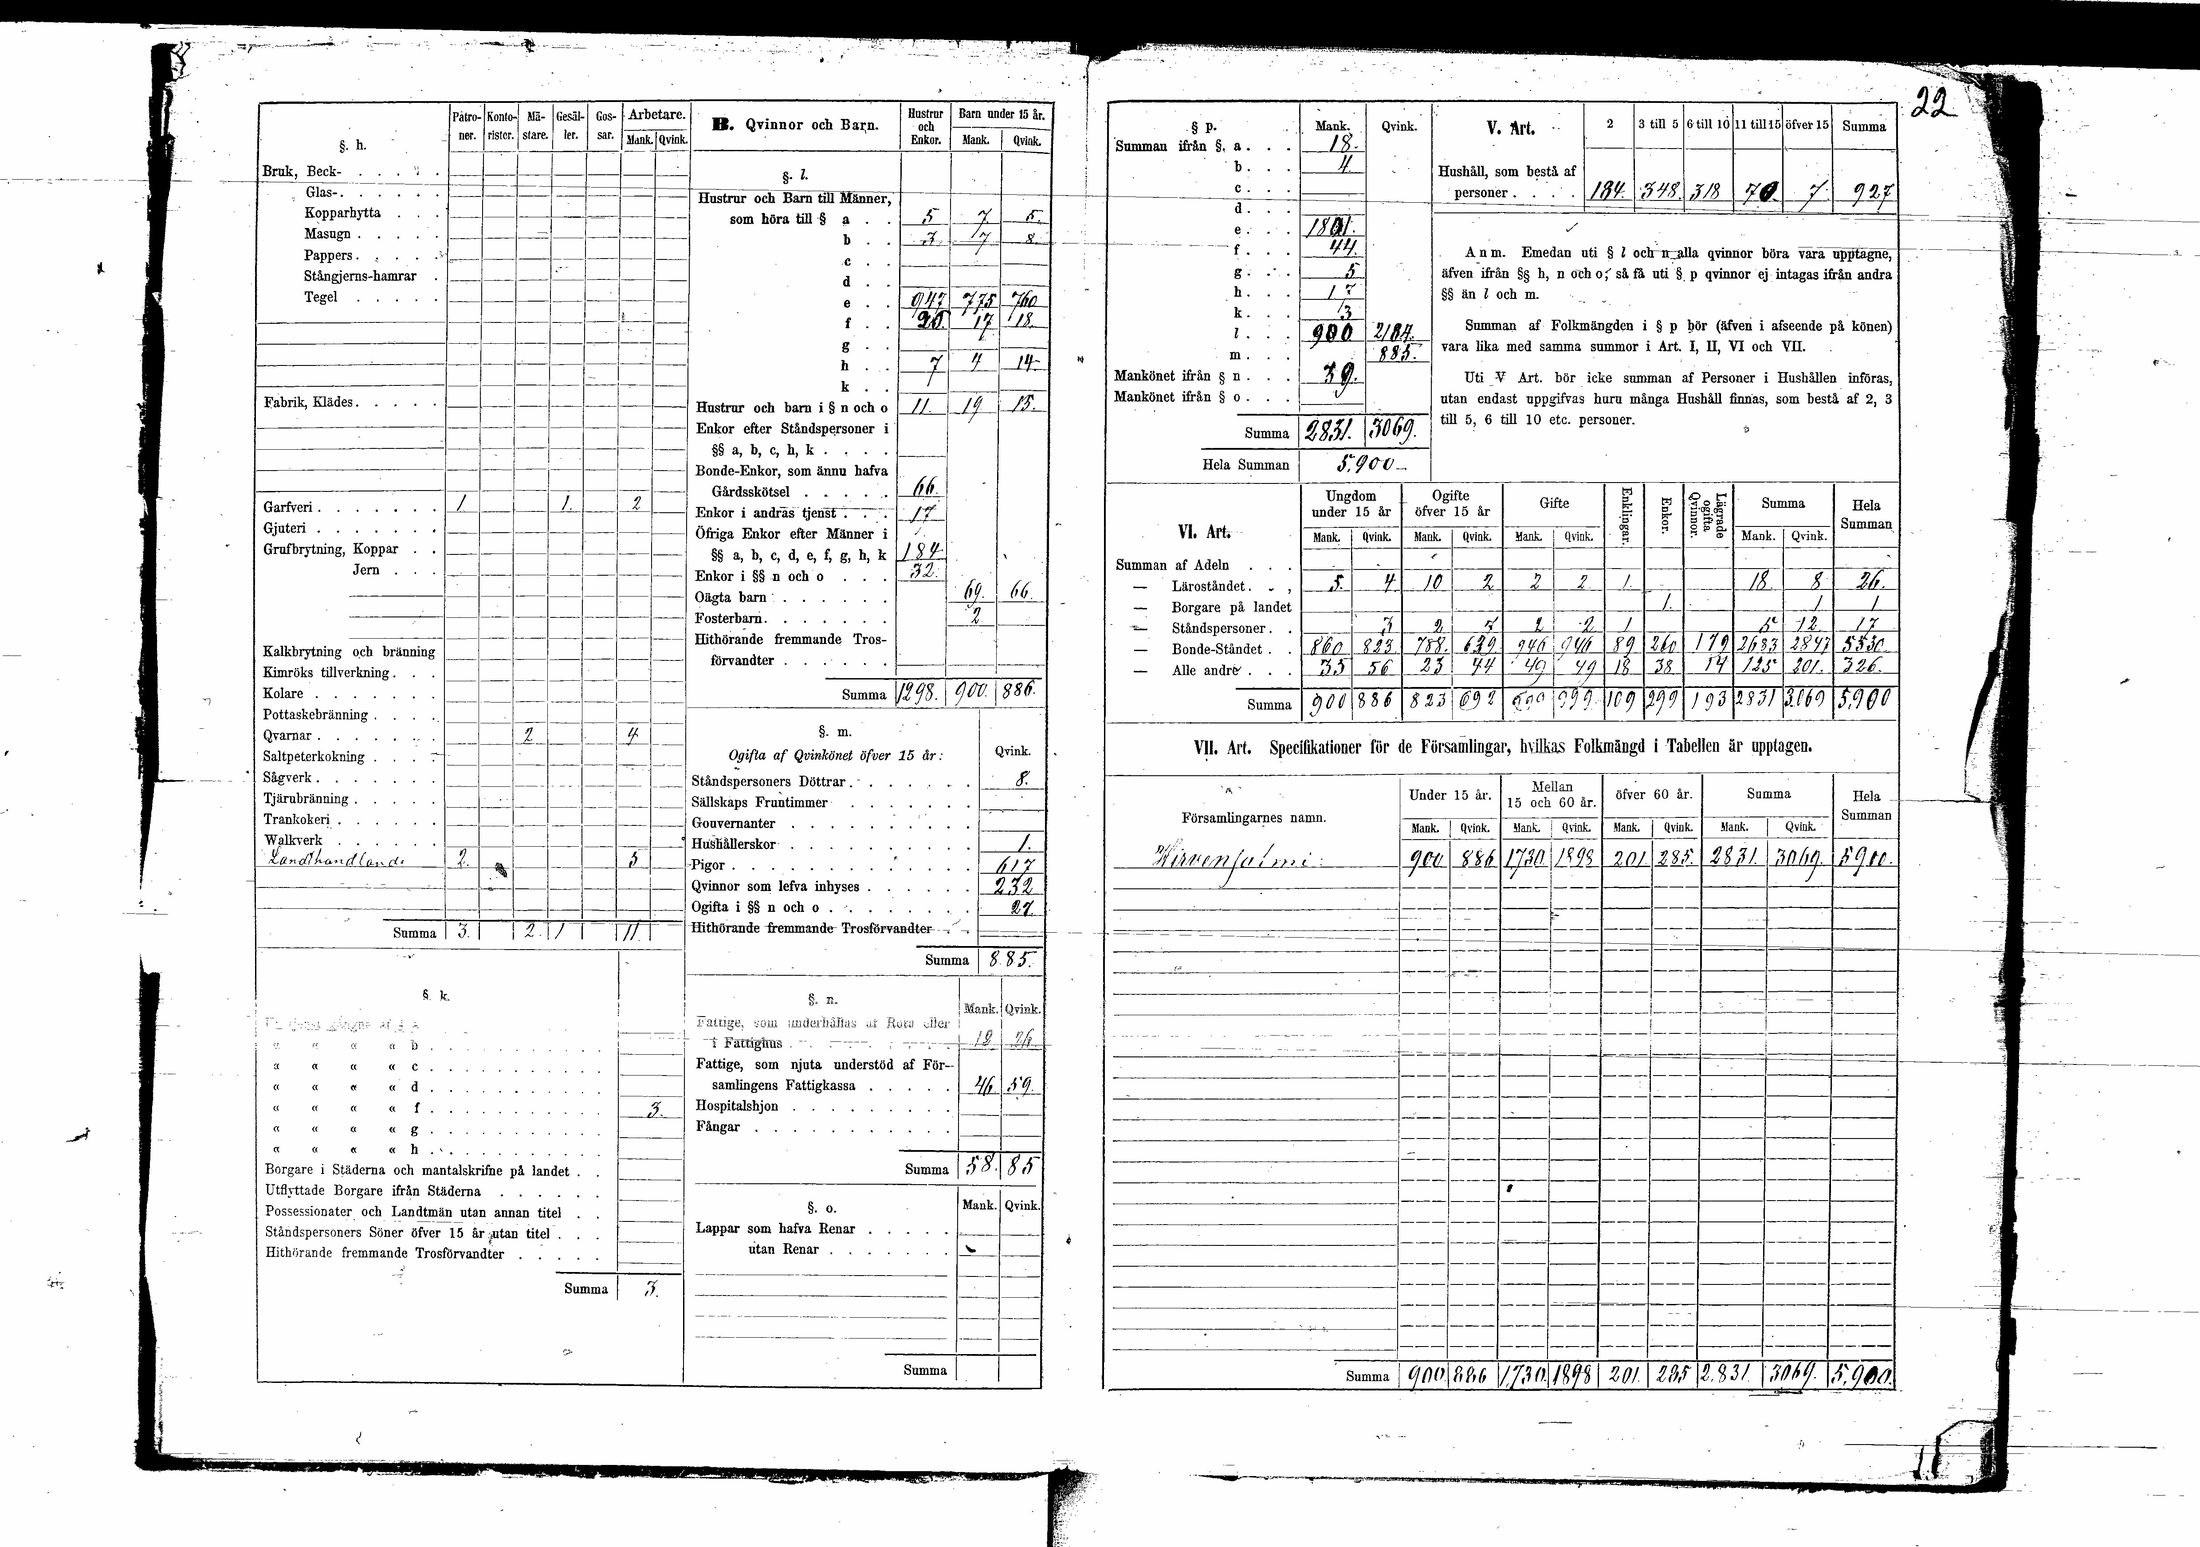 22
§. h.
Patro-ner. Konto-rister. Mä-stare. Gesäl-ler. Gos-sar. Arbetare. Mank. Qvink.
Bruk, Beck-
Glas-
Kopparhytta
Masugn
Pappers
Stångjerns-hamrar
Tegel
Fabrik, Klädes
Garfveri 1 1. 2
Gjuteri
Grufbrytning, Koppar
Jern
Kalkbrytning och bränning
Kimröks tillverkning
Kolare
Pottaskebränning
Qvarnar 2 4
Saltpeterkokning
Sågverk
Tjärubränning
Trankokeri
Walkverk
Landthandlande 2. 5
Summa 3. 2. 1 11.
§. k.
« « « « b
« « « « c
« « « « d
« « « « f 3.
« « « « g
« « « « h
Borgare i Städerna och mantalskrifne på landet
Utflyttade Borgare ifrån Städerna
Possessionater och Landtmän utan annan titel
Ståndspersoners Söner öfver 15 år utan titel
Hithörande fremmande Trosförvandter
Summa 3.
B. Qvinnor och Barn. Hustrur och Enkor. Barn under 15 år. Mank. Qvink.
§. l.
Hustrur och Barn till Männer,
som höra till § a 5 7 5.
b 3 7 8.
c
d
e 947 775 760
f 20. 17 18.
g
h 7 4 14
k
Hustrur och barn i § n och o 11. 19 15.
Enkor efter Ståndspersoner i
§§ a, b, c, h, k
Bonde-Enkor, som ännu hafva
Gårdsskötsel 66.
Enkor i andras tjenst 17
Öfriga Enkor efter Männer i
§§ a, b, c, d, e, f, g, h, k 184
Enkor i §§ n och o 32.
Oägta barn 69. 66.
Fosterbarn 2
Hithörande fremmande Tros-
förvandter
Summa 1298. 900. 886.
§. m.
Ogifta af Qvinkönet öfver 15 år: Qvink.
Ståndspersoners Döttrar 8.
Sällskaps Fruntimmer
Gouvernanter
Hushållerskor 1.
Pigor 617
Qvinnor som lefva inhyses 232
Ogifta i §§ n och o 27.
Hithörande fremmande Trosförvandter
Summa 885.
§. n. Mank. Qvink.
Fattige, som underhållas af Rota eller
i Fattighus 12 26
Fattige, som njuta understöd af För-
samlingens Fattigkassa 46 59.
Hospitalshjon
Fångar
Summa 58. 85
§. o. Mank. Qvink.
Lappar som hafva Renar
utan Renar
Summa
§ p. Mank. Qvink.
Summan ifrån §. a 18.
b 4.
c
d
e 1801.
f 44.
g 5
h 17
k 3
l 900 2184.
m 885.
Mankönet ifrån § n 39.
Mankönet ifrån § o
Summa 2831. 3069.
Hela Summan 5,900
V. Art. 2 3 till 5 6 till 10 11 till 15 öfver 15 Summa
Hushåll, som bestå af
personer 184. 348. 318 70. 7. 927
Anm. Emedan uti § l och n alla qvinnor böra vara upptagne,
äfven ifrån §§ h, n och o, så få uti § p qvinnor ej intagas ifrån andra
§§ än l och m.
Summan af Folkmängden i § p bör (äfven i afseende på könen)
vara lika med samma summor i Art. I, II, VI och VII.
Uti V Art. bör icke summan af Personer i Hushållen införas,
utan endast uppgifvas huru många Hushåll finnas, som bestå af 2, 3
till 5, 6 till 10 etc. personer.
VI. Art. Ungdom under 15 år Ogifte öfver 15 år Gifte Enklingar. Enkor. Lägrade ogifta Qvinnor. Summa Hela Summan
Mank. Qvink. Mank. Qvink. Mank. Qvink. Mank. Qvink.
Summan af Adeln
— Läroståndet 5. 4 10 2 2 2 1. 18 8 26.
— Borgare på landet 1. 1 1
— Ståndspersoner 3 2 7 2 2 1 5 12 17
— Bonde-Ståndet 860 823 788. 639 946 946 89 260 179 2683 2847 5530
— Alle andre 35 56 23 44 49 49 18 38 14 125 201. 326.
Summa 900 886 823 692 999 999 109 299 193 2831 3,069 5,900
VII. Art. Specifikationer för de Församlingar, hvilkas Folkmängd i Tabellen är upptagen.
Församlingarnes namn. Under 15 år. Mellan 15 och 60 år. öfver 60 år. Summa Hela Summan
Mank. Qvink. Mank. Qvink. Mank. Qvink. Mank. Qvink.
Hirvensalmi 900 886 1730 1898 201 285. 2831. 3069. 5900.
Summa 900 886 1,730 1898 201. 285 2,831. 3069. 5,900.